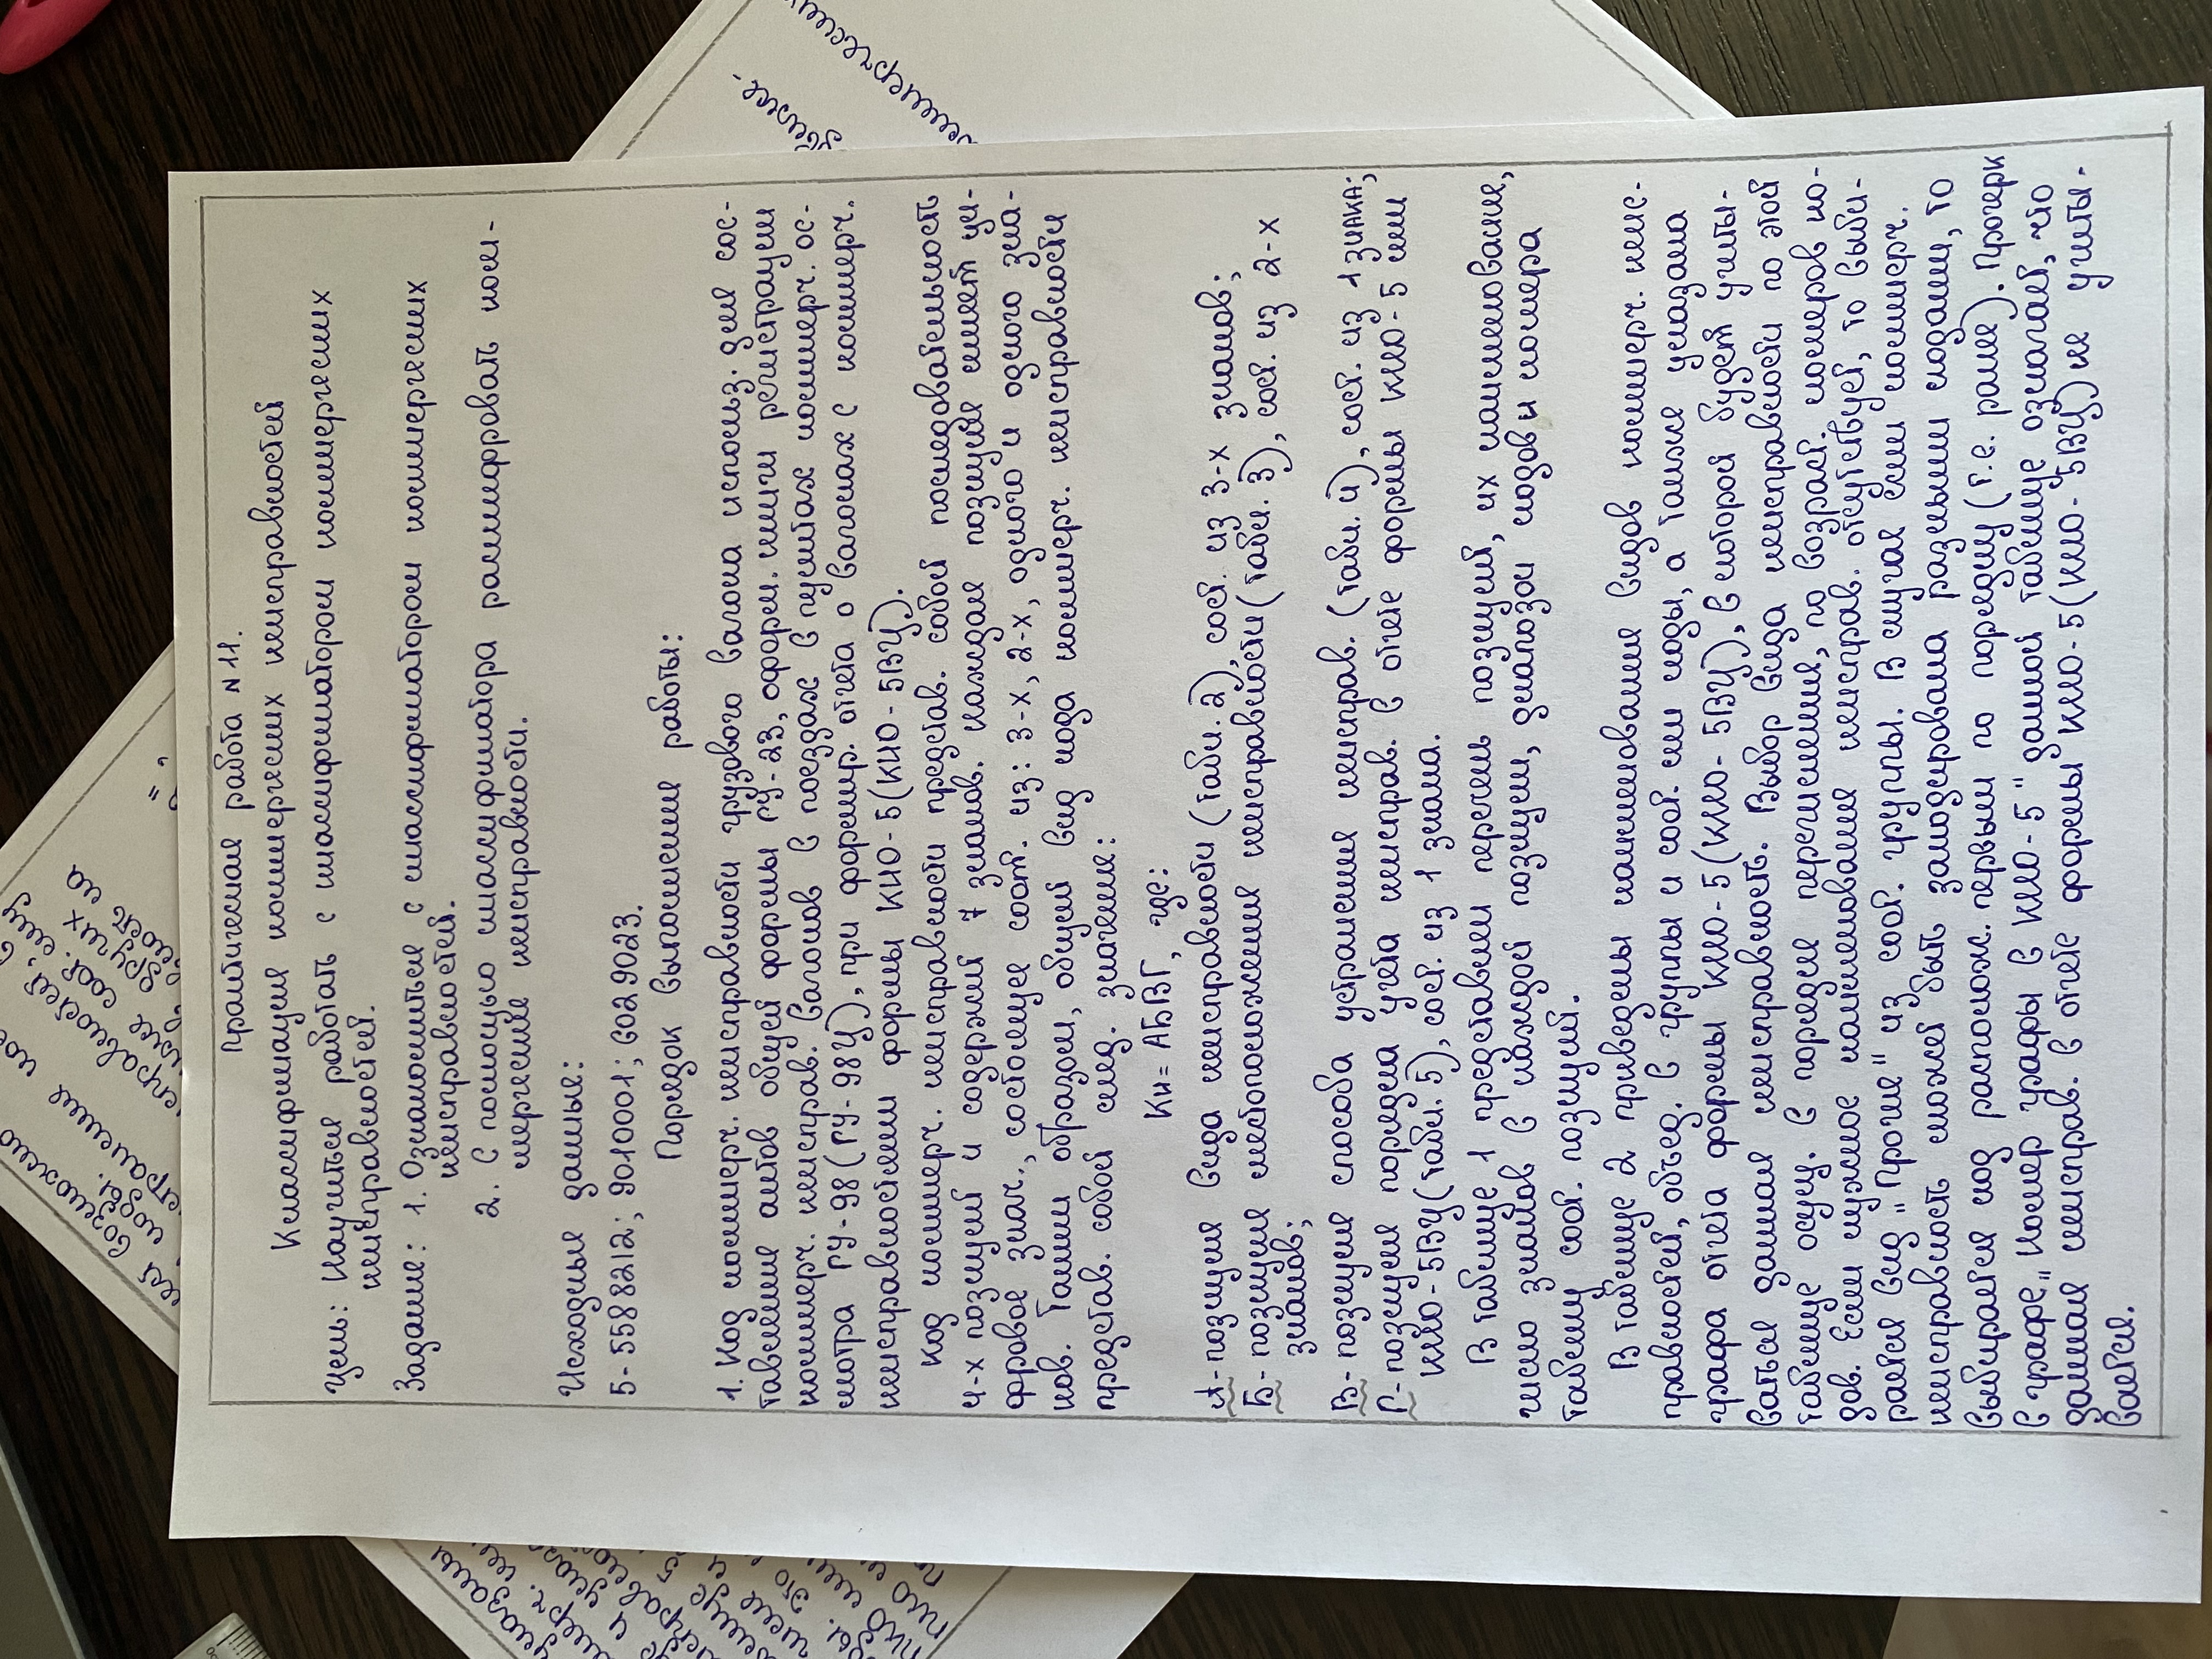 Практическая работа N 11.
Классификация коммерческих неисправностей
Цель: Научиться работать с классификатором коммерческих
неисправностей.
Задание: 1. Ознакомиться с классификатором коммерческих
неисправностей.
2. С помощью классификатора расшифровать ком-
мерческие неисправности.
Исходные данные:
5-5588212; 9010001; 6029023.
Порядок выполнения работы:
1. Код коммерч. неисправности грузового вагона использ. для сос-
тавления актов общей формы ГУ-23, оформ. книги регистрации
коммерч. неисправ. вагонов в поездах в пунктах коммерч. ос-
мотра ГУ-98 (ГУ-98Ц), при формир. отчета о вагонах с коммерч.
неисправностями формы КНО-5(КНО-5ВЦ).
Код коммерч. неисправности представ. собой последовательность
4-х позиций и содержит 7 знаков. Каждая позиция имеет ци-
фровое знач., состоящее соот. из: 3-х, 2-х, одного и одного зна-
ков. Таким образом, общий вид кода коммерч. неисправности
представ. собой след. значение:
Кн = АБВГ, где:
А- позиция вида неисправности (табл. 2), сост. из 3-х знаков;
Б- позиция местоположения неисправности (табл. 3), сост. из 2-х
знаков;
В- позиция способа устранения неисправ. (табл. 4), сост. из 1 знака;
Г- позиция порядка учета неисправ. в отчете формы КНО-5 или
КНО-5ВЦ (табл. 5), сост. из 1 знака.
В таблице 1 представлен перечень позиций, их наименование,
число знаков в каждой позиции, диапазон кодов и номера
таблиц соот. позиций.
В таблице 2 приведены наименование видов коммерч. неис-
правностей, объед. в группы и соот. им коды, а также указана
графа отчета формы КНО-5 (КНО-5ВЦ), в которой будет учиты-
ваться данная неисправность. Выбор вида неисправности по этой
таблице осущ. в порядке перечисления, по возраст. номеров ко-
дов. Если искомое наименование неисправ. отсутствует, то выби-
рается вид "прочие" из соот. группы. В случае если коммерч.
неисправность может быть закодирована разными кодами, то
выбирается код расположен. первым по порядку (т.е. ранее). Прочерк
в графе "Номер графы в КНО-5" данной таблицы означает, что
данная неисправ. в отчете формы КНО-5(КНО-5ВЦ) не учиты-
вается.